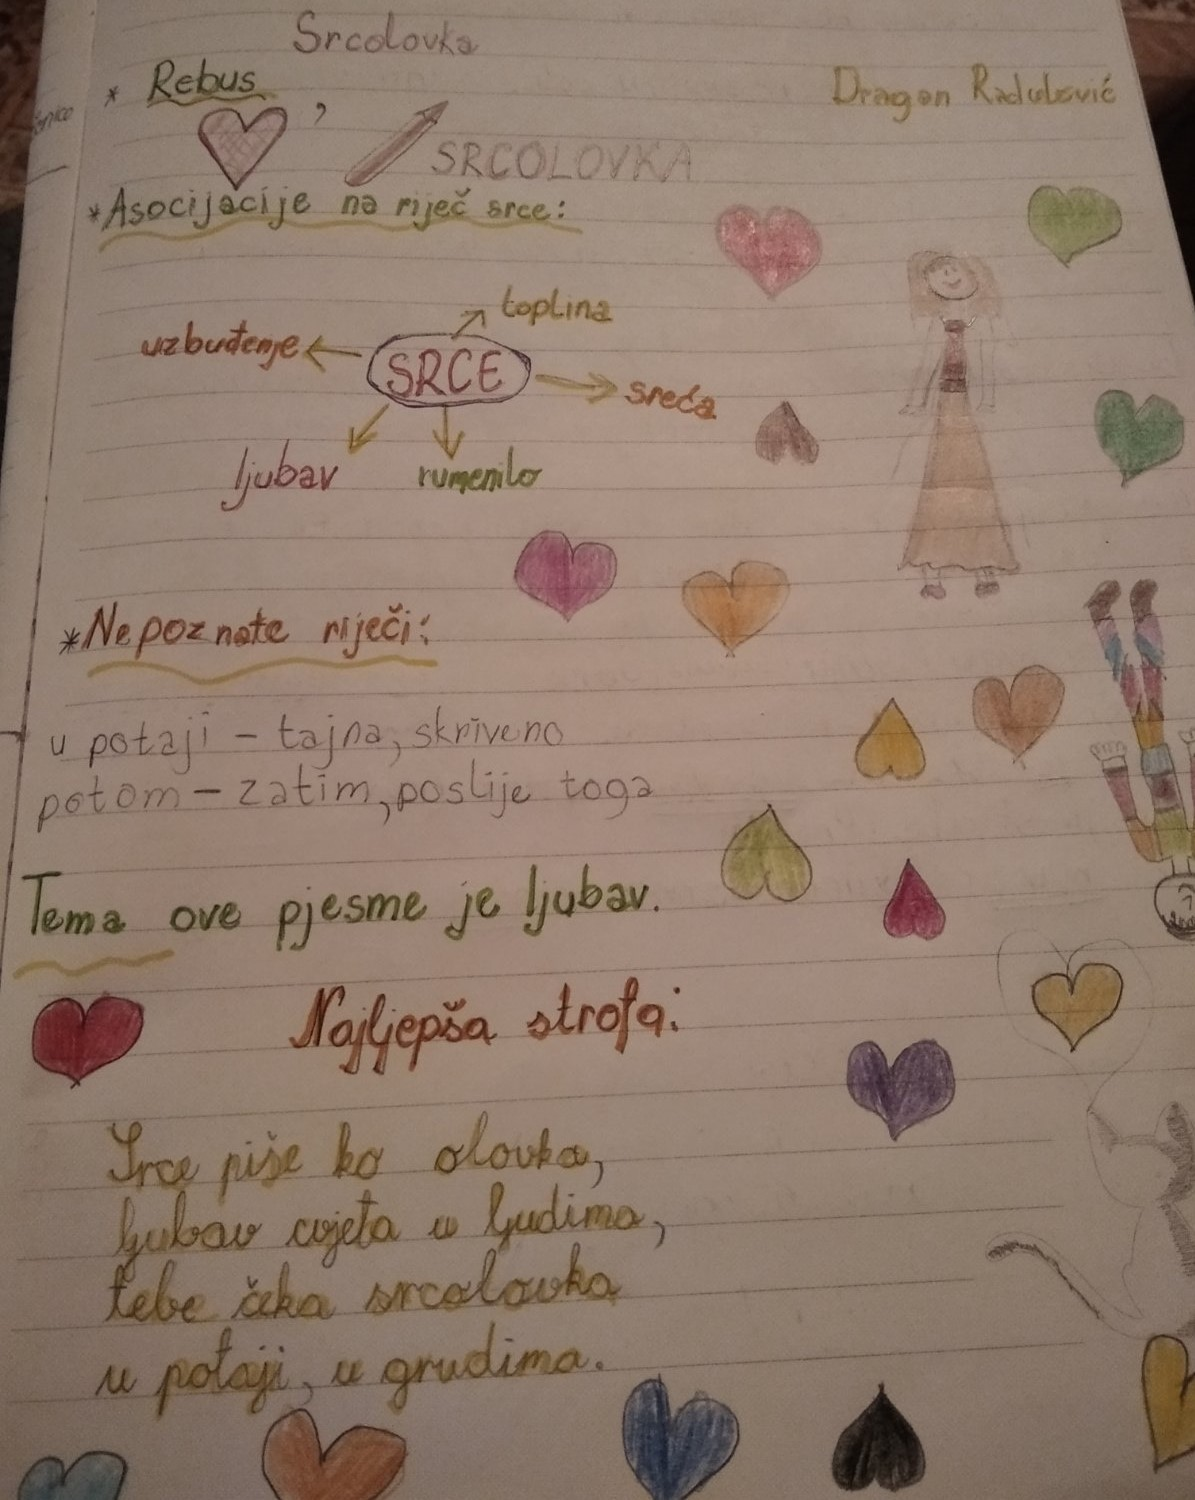 Srcolovka
* Rebus
Dragan Radulović
, SRCOLOVKA
*Asocijacije na riječ srce:
toplina
uzbuđenje
SRCE
sreća
ljubav
rumenilo
*Nepoznate riječi:
u potaji – tajna, skriveno
potom – zatim, poslije toga
Tema ove pjesme je ljubav.
Najljepša strofa:
Srce piše ko olovka,
ljubav cvjeta u ljudima,
tebe čeka srcolovka
u potaji, u grudima.